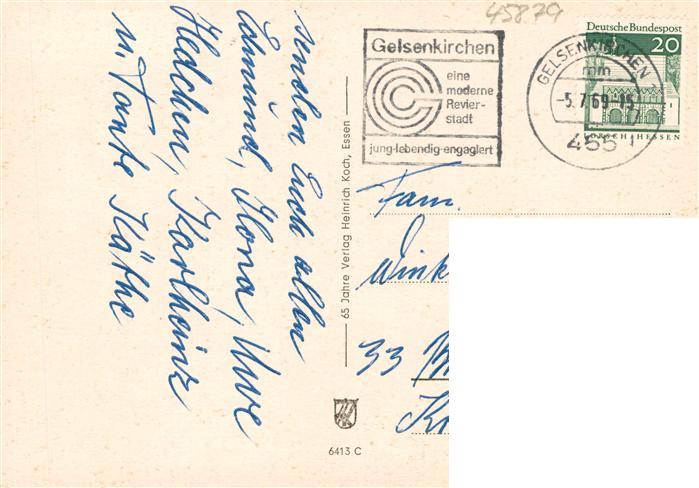 45879
Deutsche Bundespost
20
LORSCH/HESSEN
GELSENKIRCHEN
mm
-5.7.69-15
4551
Gelsenkirchen
eine
moderne
Revier-
stadt
jung-lebendig-engagiert
senden Euch allen
Edmund, Ilona, Uwe
Hedchen, Karlheinz
u. Tante Käthe
65 Jahre Verlag Heinrich Koch, Essen
Fam.
Wink
33
6413 C